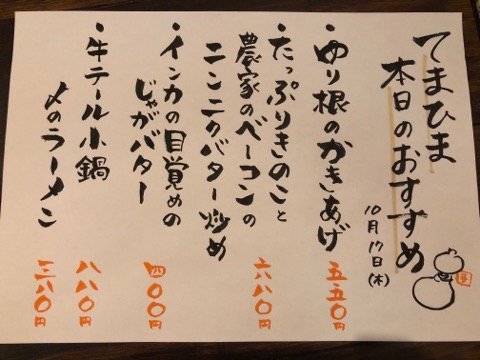 てまひま
本日のおすすめ
10月17日(木)
・ゆり根のかきあげ 五五〇円
・たっぷりきのこと
農家のベーコンの
ニンニクバター炒め 六八〇円
・インカの目覚めの
じゃがバター 四〇〇円
・牛テール小鍋 八八〇円
〆のラーメン 三八〇円